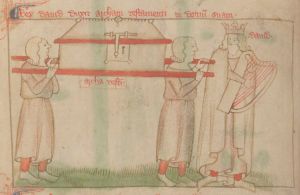 Rex david duxit archam testamenti in domum suam
david
archa testi